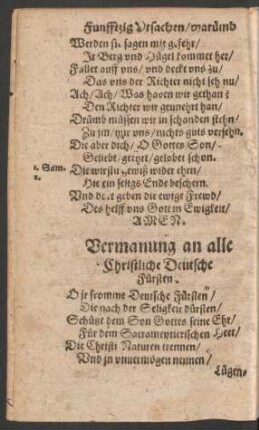 Funfftzig Vrsachen/ warumb
Werden sie sagen mit gefehr/
Jr Berg vnd Hügel kommet her/
Fallet auff vns/ vnd deckt vns zu/
Das vns der Richter nicht seh nu/
Ach/ Ach/ Was haben wir gethan?
Den Richter wir gevnehrt han/
Drümb müssen wir in schanden stehn/
Zu jm/ vns nichts guts versehn.
Die aber dich/ O Gottes Son/
Geliebt/ geehrt/ gelobet schon.
1. Sam. 2.
Die wirstu gewiß wider ehrn/
Hie ein seligs Ende beschern.
Vnd dort geben die ewige Frewd/
Des helff vns Gott in Ewigkeit/
AMEN.
Vermanung an alle
Christliche Deutsche
Fürsten.
O jr fromme Deutsche Fürsten/
Die nach der Seligkeit dürsten/
Schützt dem Son Gottes seine Ehr/
Für dem Sacramentierischen Heer/
Die Christi Naturen trennen/
Vnd jn vnuermögen nennen/
Lügen-